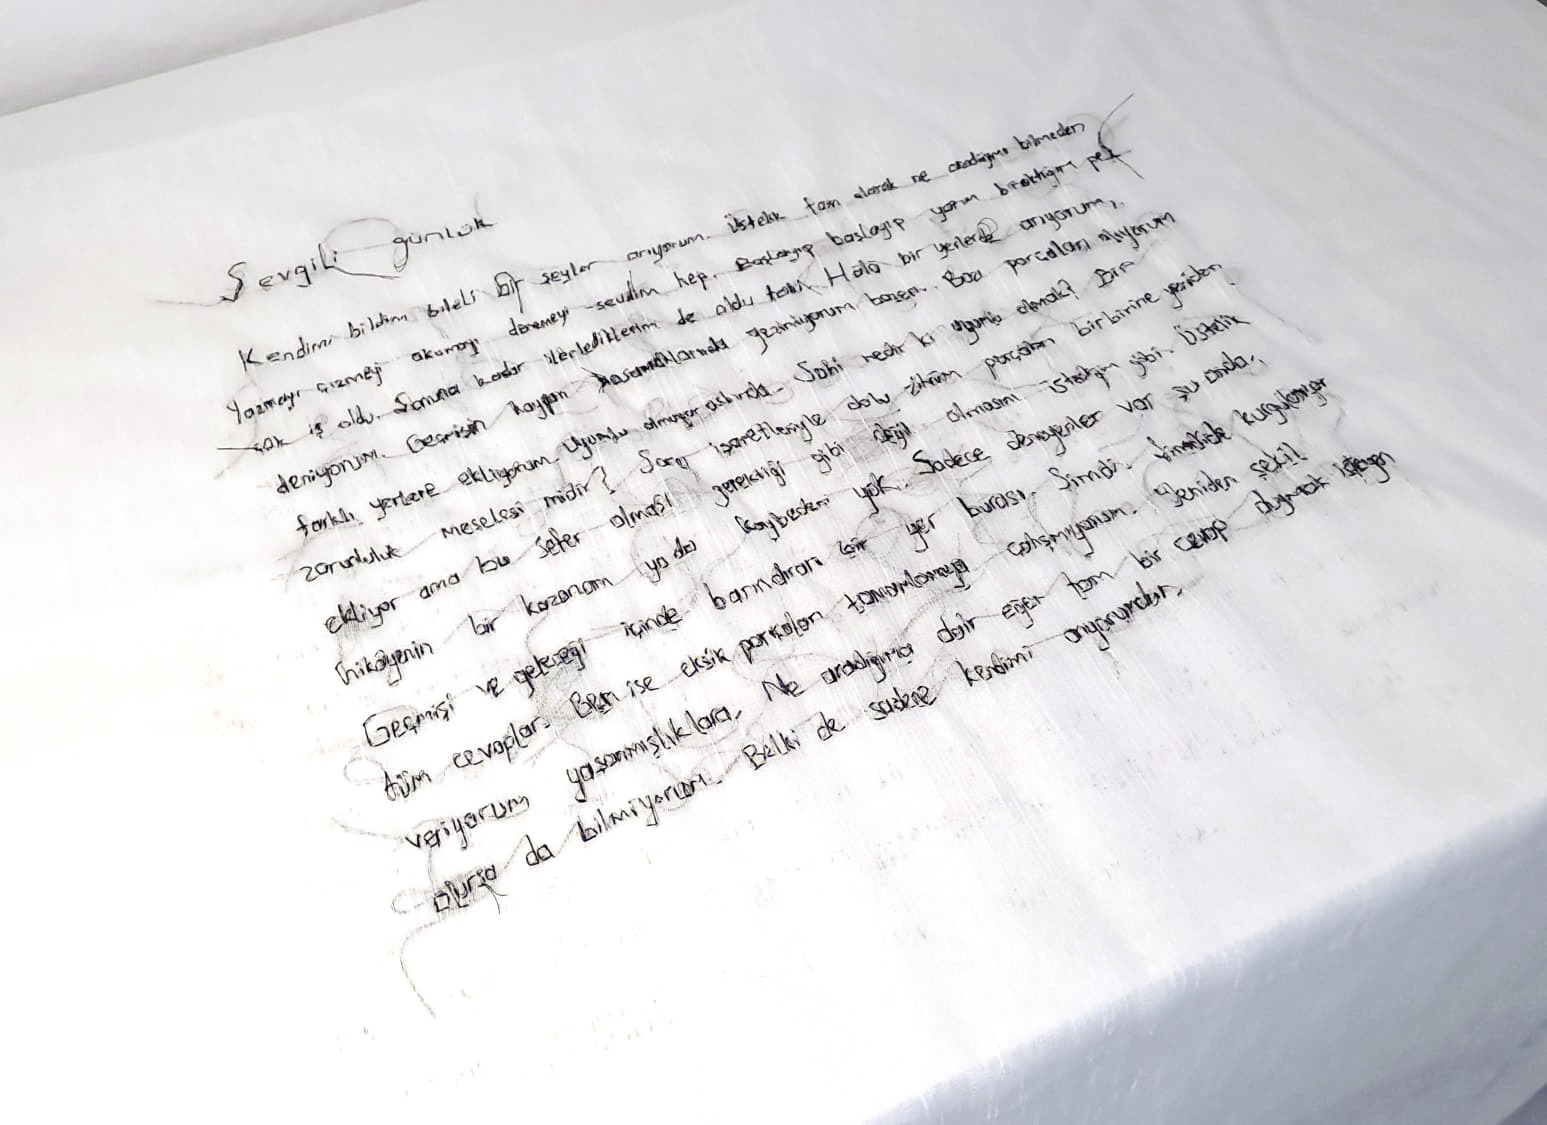 Sevgili günlük
Kendimi bildim bileli bir şeyler arıyorum. Üstelik tam olarak ne aradığımı bilmeden
Yazmayı çizmeyi okumayı denemeyi sevdim hep. Başlayıp başlayıp yarım bıraktığım pek
çok iş oldu. Sonuna kadar ilerlediklerim de oldu tabi. Hâlâ bir yerlerde arıyorum,
deniyorum. Geçmişin kaygan basamaklarında geziniyorum bazen. Bazı parçaları alıyorum
farklı yerlere ekliyorum uyumlu olmuyor aslında. Sahi nedir ki uyumlu olmak? Bir
zorunluluk meselesi midir? Soru işaretleriyle dolu zihnim parçaları birbirine yeniden
ekliyor ama bu sefer olması gerektiği gibi değil olmasını istediğim gibi. Üstelik
hikayenin bir kazananı ya da kaybedeni yok. Sadece deneyenler var şu anda.
Geçmişi ve geleceği içinde barındıran bir yer burası. Şimdi. Şimdide kurgulanıyor
tüm cevaplar. Ben ise eksik parçaları tamamlamaya çalışmıyorum. Yeniden şekil
veriyorum yaşanmışlıklara. Ne aradığıma dair eğer tam bir cevap duymak isteyen
olursa da bilmiyorum. Belki de sadece kendimi arıyorumdur.